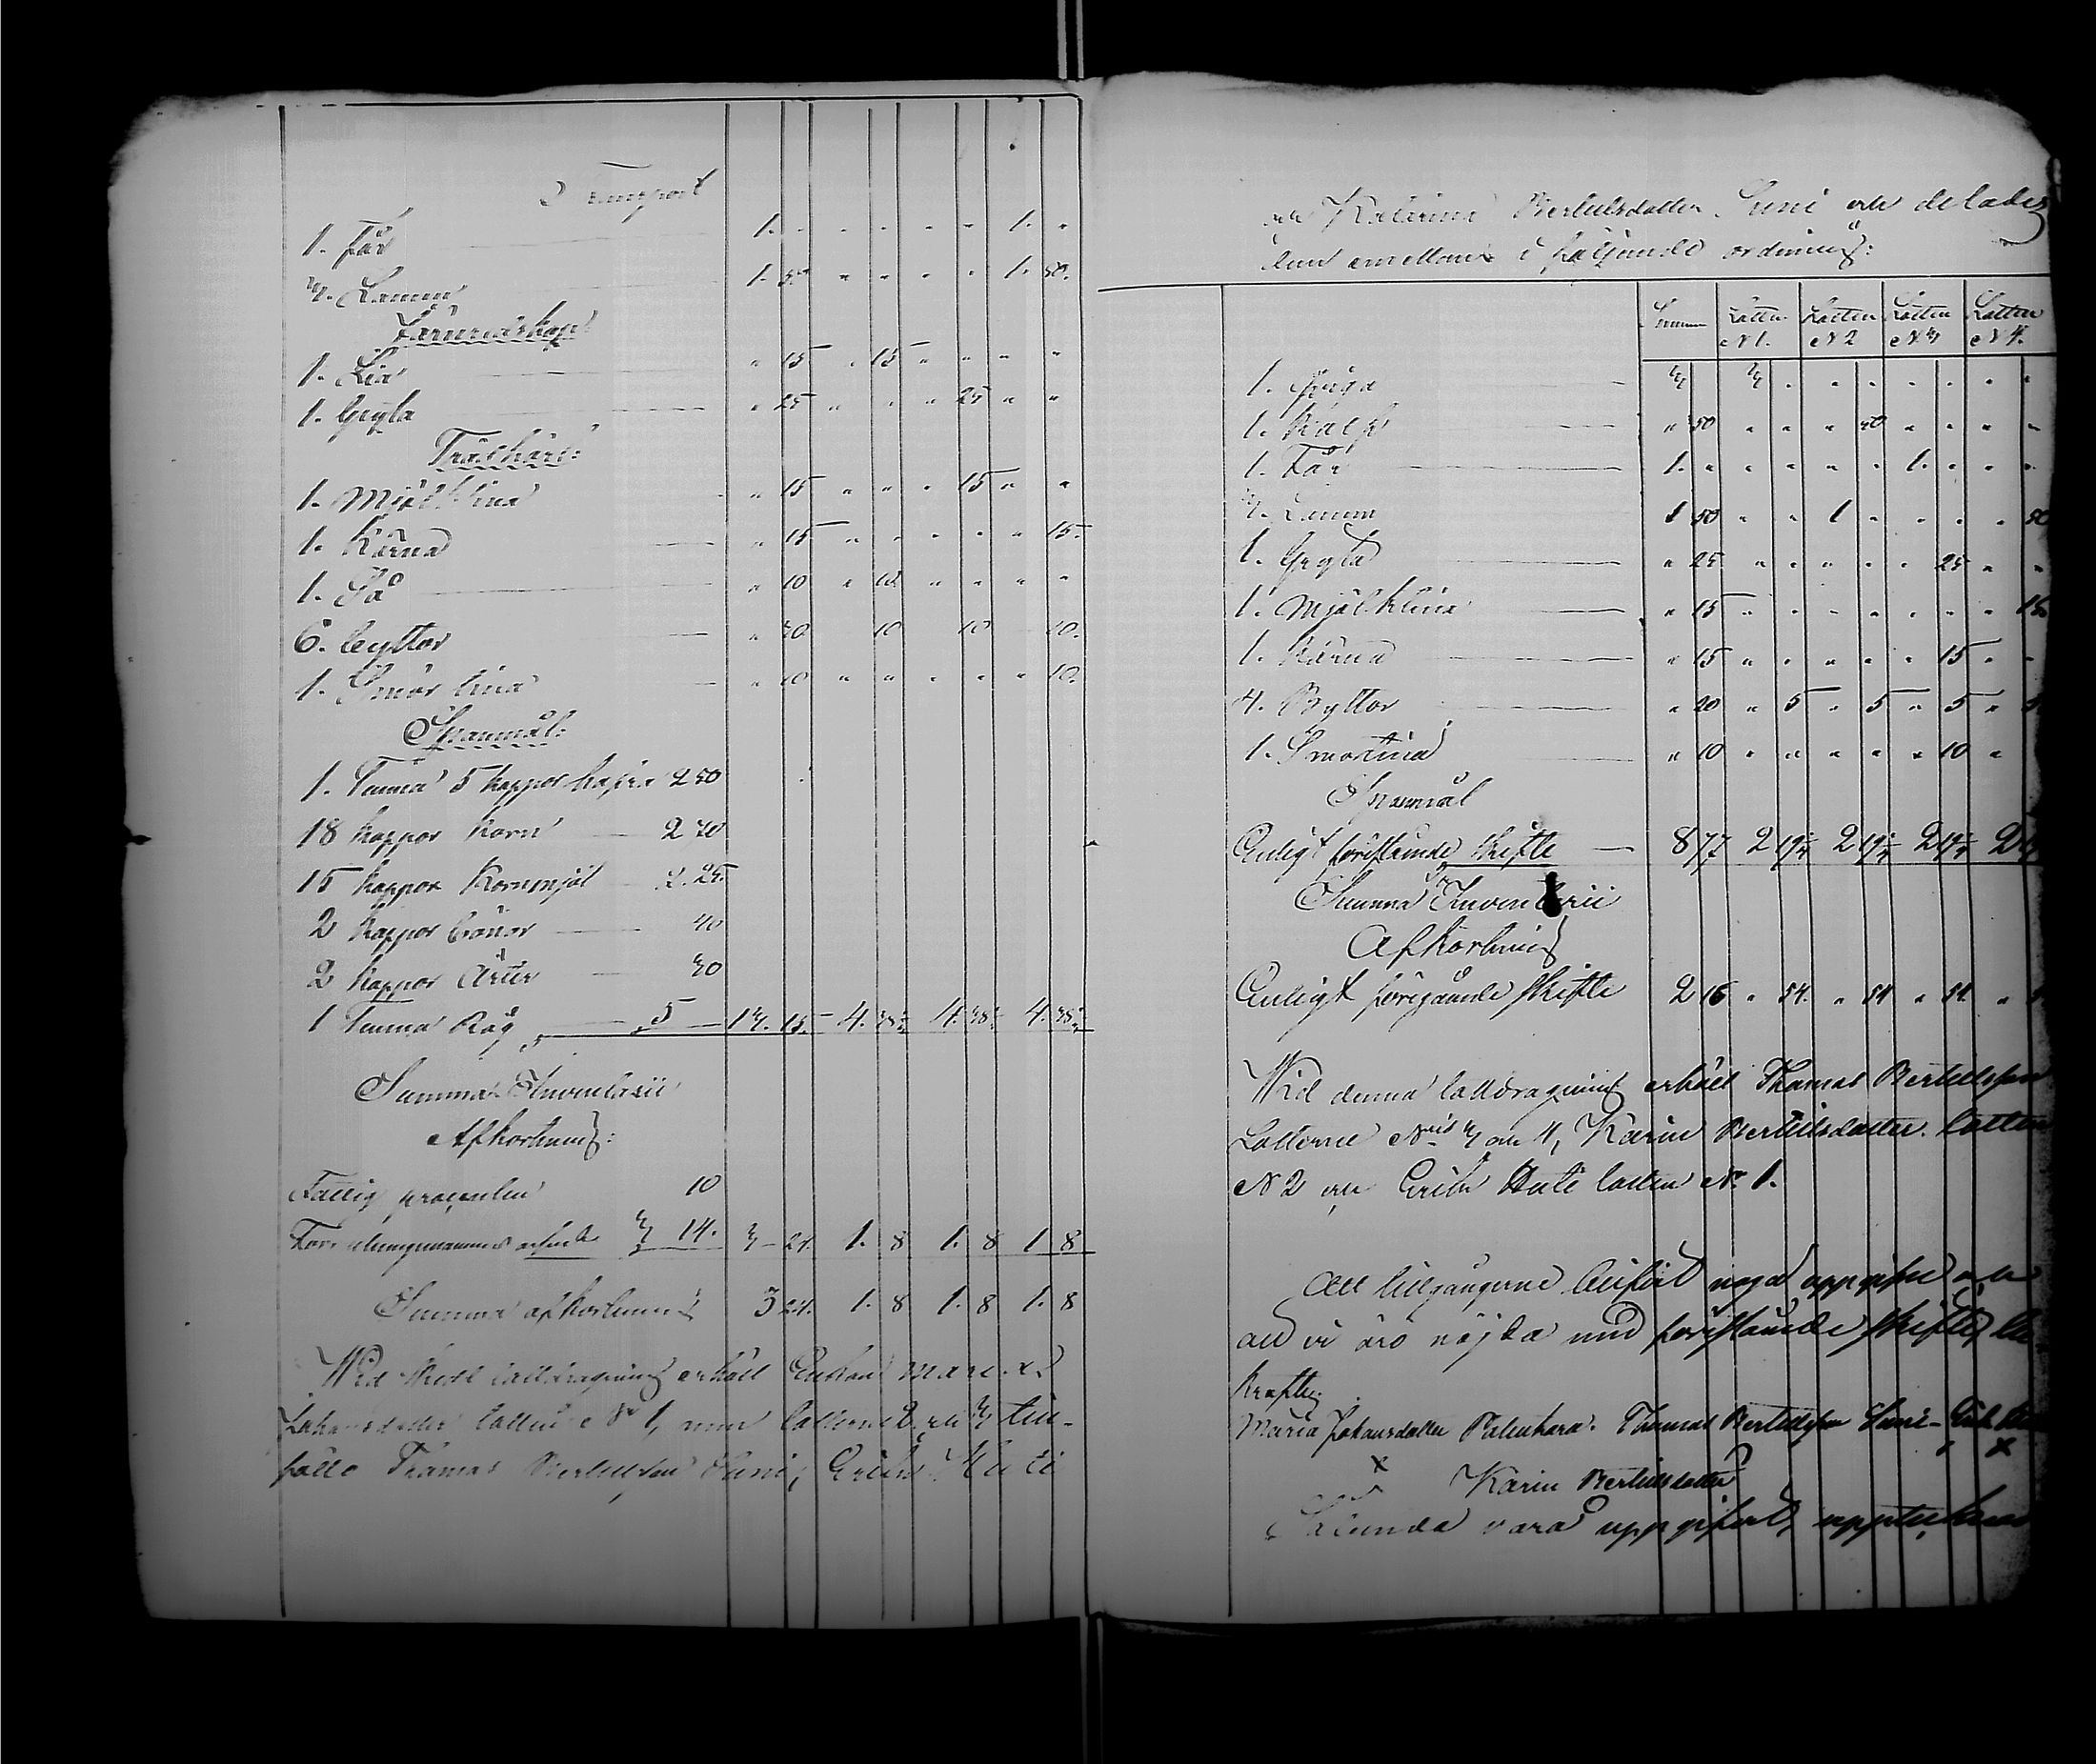 Transport
1. Får 1. " " " " " 1. "
3. Lamm 1. 50 " " " " 1. 50.
Järnredskap:
1. Lia " 15 " 15 " " " "
1. Gryta " 25 " " " 25 " "
Träkäril:
1. Mjölktina " 15 " " " 15 " "
1. Kärna " 15 " " " " " 15.
1. Så " 10 " 10 " " " "
6. Byttor " 30 10 10 10.
1. Smörtina " 10 " " " " " 10.
Spanmål:
1. Tunna 5 kappor hafra 2 50
18 kappor Korn 2 70
15 kappor Kornmjöl 2. 25.
2 kappor bönor 40
2 kappor Ärter 30
1 Tunna Råg 5 13. 15. 4. 38 4. 38 4. 38
Summa Inventarii
Afkortning:
Fattig procenten 10
3 14. 3 24. 1. 8 1. 8 1. 8
Summa afkortning 3 24. 1. 8 1. 8 1. 8
Wid skedd lottdragning erhöll Enkan Maria
Johansdotter lotten No 1, men lotterne 2 och 3 till-
föllo Thomas Bertillsson Suni, Erik Huti
och Katarina Bertilsdotter Suni och delades
dem emellan i följande ordning:
Summa Lotten N 1. Lotten N 2 Lotten N 3 Lotten N 4.
1. Qviga 3 3 " " " " " " "
1. Kalf " 50 " " " 50 " " " "
1. Får 1. " " " " " 1. " " "
3. Lamm 1 50 " " 1 " " " " 50
1. Gryta " 25 " " " " " 25 " "
1. Mjölktina " 15 " " " " " " " 15
1. Kärna " 15 " " " " " 15 " "
4. Byttor " 20 " 5 " 5 " 5 "
1. Smörtina " 10 " " " " " 10 "
Spanmål
Enligt förestående skifte 8 77 2 19¼ 2 19¼ 2 19¼ 2
Summa Inventarii
Afkortning
Enligt föregående skifte 2 16 " 54. " 54 " 54. "
Wid denna lottdragning erhöll Thomas Bertillsson
Lotterne N 3 och 4, Karin Bertilsdotter lotten
N 2 och Erik Huti lotten No 1.
Att tillgångerne blifvit noga uppgifne och
att vi äro nöjda med förestående skifte,
kraftig
Maria Johansdotter Thomas Bertillsson Suni Erik
x x
Karin Bertilsdotter
Sålunda vara uppgifvet,